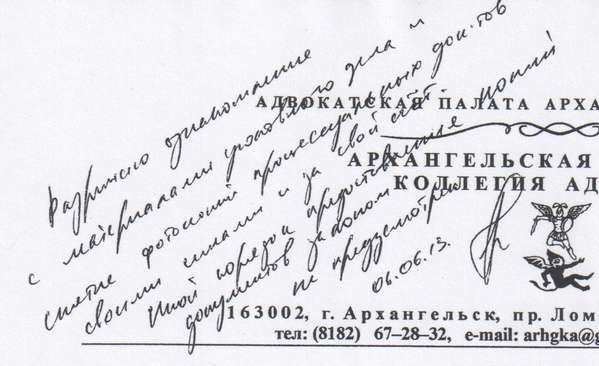 Разрешено ознакомление
с материалами уголовного дела и
снятие фотокопий процессуальных док-тов
своими силами и за свой счёт.
Иной порядок предоставления копий
документов законом
не предусмотрен
06.06.13.
АДВОКАТСКАЯ ПАЛАТА АРХА
АРХАНГЕЛЬСКАЯ
КОЛЛЕГИЯ АД
163002, г. Архангельск, пр. Лом
тел: (8182) 67–28–32, e-mail: arhgka@g